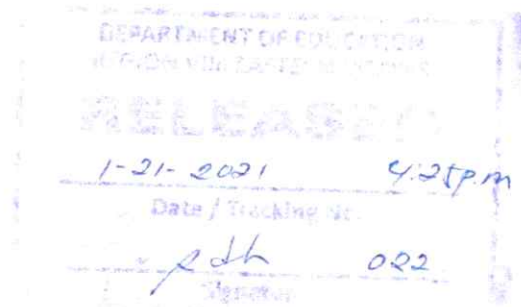 DEPARTMENT OF EDUCATION
REGION VIII
RELEASED
1-21-2021 4:25p.m
Date / Tracking No.
022
Signature